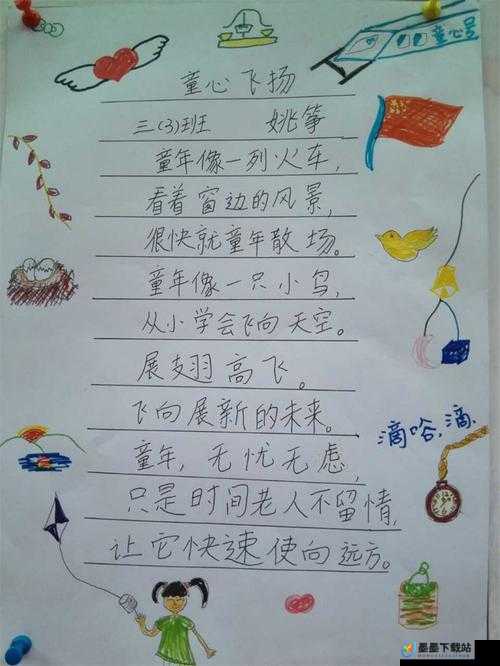 童心号
童心飞扬
三(3)班 姚筝
童年像一列火车,
看着窗边的风景,
很快就童年散场。
童年像一只小鸟,
从小学会飞向天空。
展翅高飞。
飞向展新的未来。
滴哈,滴.
童年,无忧无虑,
只是时间老人不留情,
让它快速使向远方。
墨墨下载站